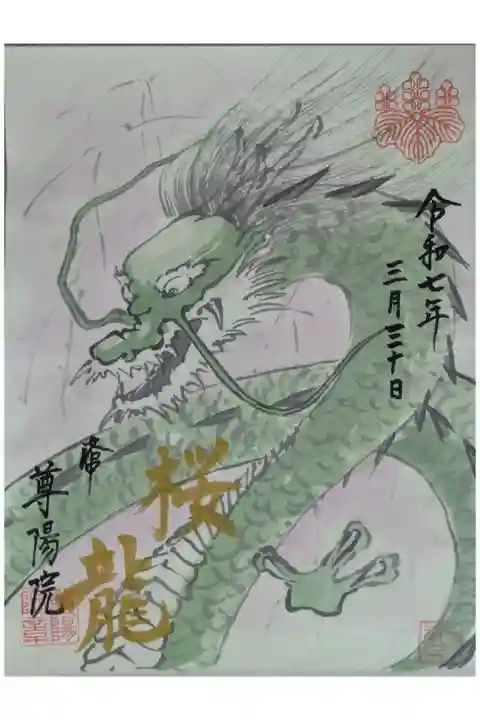 令和七年
三月三十日
桜
龍
尊陽院